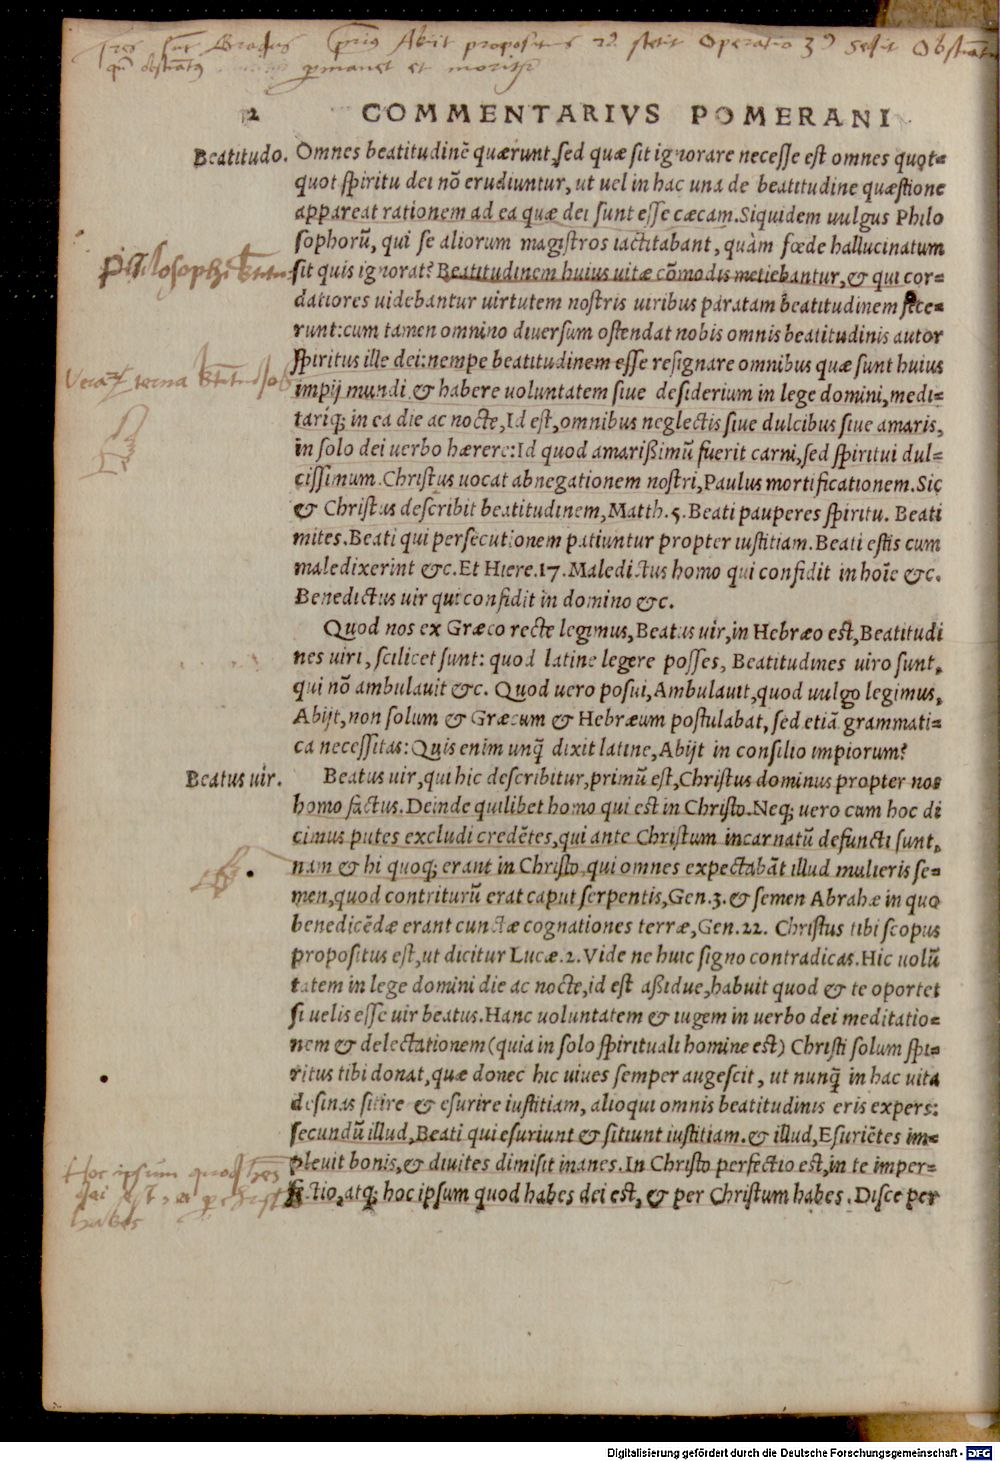 Tres sunt Gradus primus Abiit propositus 2us stetit Operatio 3us sedit Obstinatus
qui obstinatus permanet et moritur
2 COMMENTARIVS POMERANI
Beatitudo. Omnes beatitudinē quærunt, sed quæ sit ignorare necesse est omnes quot=
quot spiritu dei nō erudiuntur, ut uel in hac una de beatitudine quæstione
appareat rationem ad ea quæ dei sunt esse cæcam. Siquidem uulgus Philo
sophorū, qui se aliorum magistros iactitabant, quàm fœde hallucinatum
Philosophi
sit quis ignorat? Beatitudinem huius uitæ cōmodis metiebantur, & qui cor=
datiores uidebantur uirtutem nostris uiribus paratam beatitudinem fece=
runt: cum tamen omnino diuersum ostendat nobis omnis beatitudinis autor
spiritus ille dei: nempe beatitudinem esse resignare omnibus quæ sunt huius
impij mundi & habere uoluntatem siue desiderium in lege domini, medi=
tariq; in ea die ac nocte, Id est, omnibus neglectis siue dulcibus siue amaris,
in solo dei uerbo hærere: Id quod amarißimū fuerit carni, sed spiritui dul=
cissimum. Christus uocat abnegationem nostri, Paulus mortificationem. Sic
& Christus describit beatitudinem, Matth. 5. Beati pauperes spiritu. Beati
mites. Beati qui persecutionem patiuntur propter iustitiam. Beati estis cum
maledixerint &c. Et Hiere. 17. Maledictus homo qui confidit in hoīe &c.
Benedictus uir qui confidit in domino &c.
Quod nos ex Græco recte legimus, Beatus uir, in Hebræo est, Beatitudi
nes uiri, scilicet sunt: quod latine legere posses, Beatitudines uiro sunt,
qui nō ambulauit &c. Quod uero posui, Ambulauit, quod uulgo legimus,
Abijt, non solum & Græcum & Hebræum postulabat, sed etiā grammati=
ca necessitas: Quis enim unq̄ dixit latine, Abijt in consilio impiorum?
Beatus uir. Beatus uir, qui hic describitur, primū est, Christus dominus propter nos
homo factus. Deinde quilibet homo qui est in Christo. Neq; uero cum hoc di
cimus putes excludi credētes, qui ante Christum incarnatū defuncti sunt,
nam & hi quoq; erant in Christo, qui omnes expectabāt illud mulieris se=
men, quod contriturū erat caput serpentis, Gen. 3. & semen Abrahæ in quo
benedicēdæ erant cunctæ cognationes terræ, Gen. 22. Christus tibi scopus
propositus est, ut dicitur Lucæ. 2. Vide ne huic signo contradicas. Hic uolū
tatem in lege domini die ac nocte, id est aßidue, habuit quod & te oportet
si uelis esse uir beatus. Hanc uoluntatem & iugem in uerbo dei meditatio=
nem & delectationem (quia in solo spirituali homine est) Christi solum spi=
ritus tibi donat, quæ donec hic uiues semper augescit, ut nunq̄ in hac uita
desinas sitire & esurire iustitiam, alioqui omnis beatitudinis eris expers:
secundū illud, Beati qui esuriunt & sitiunt iustitiam. & illud, Esuriētes im=
pleuit bonis, & diuites dimisit inanes. In Christo perfectio est, in te imper=
fectio, atq; hoc ipsum quod habes dei est, & per Christum habes. Disce per
Hoc ipsum quod habes
dei est, et per Christum
habes
Digitalisierung gefördert durch die Deutsche Forschungsgemeinschaft - DFG